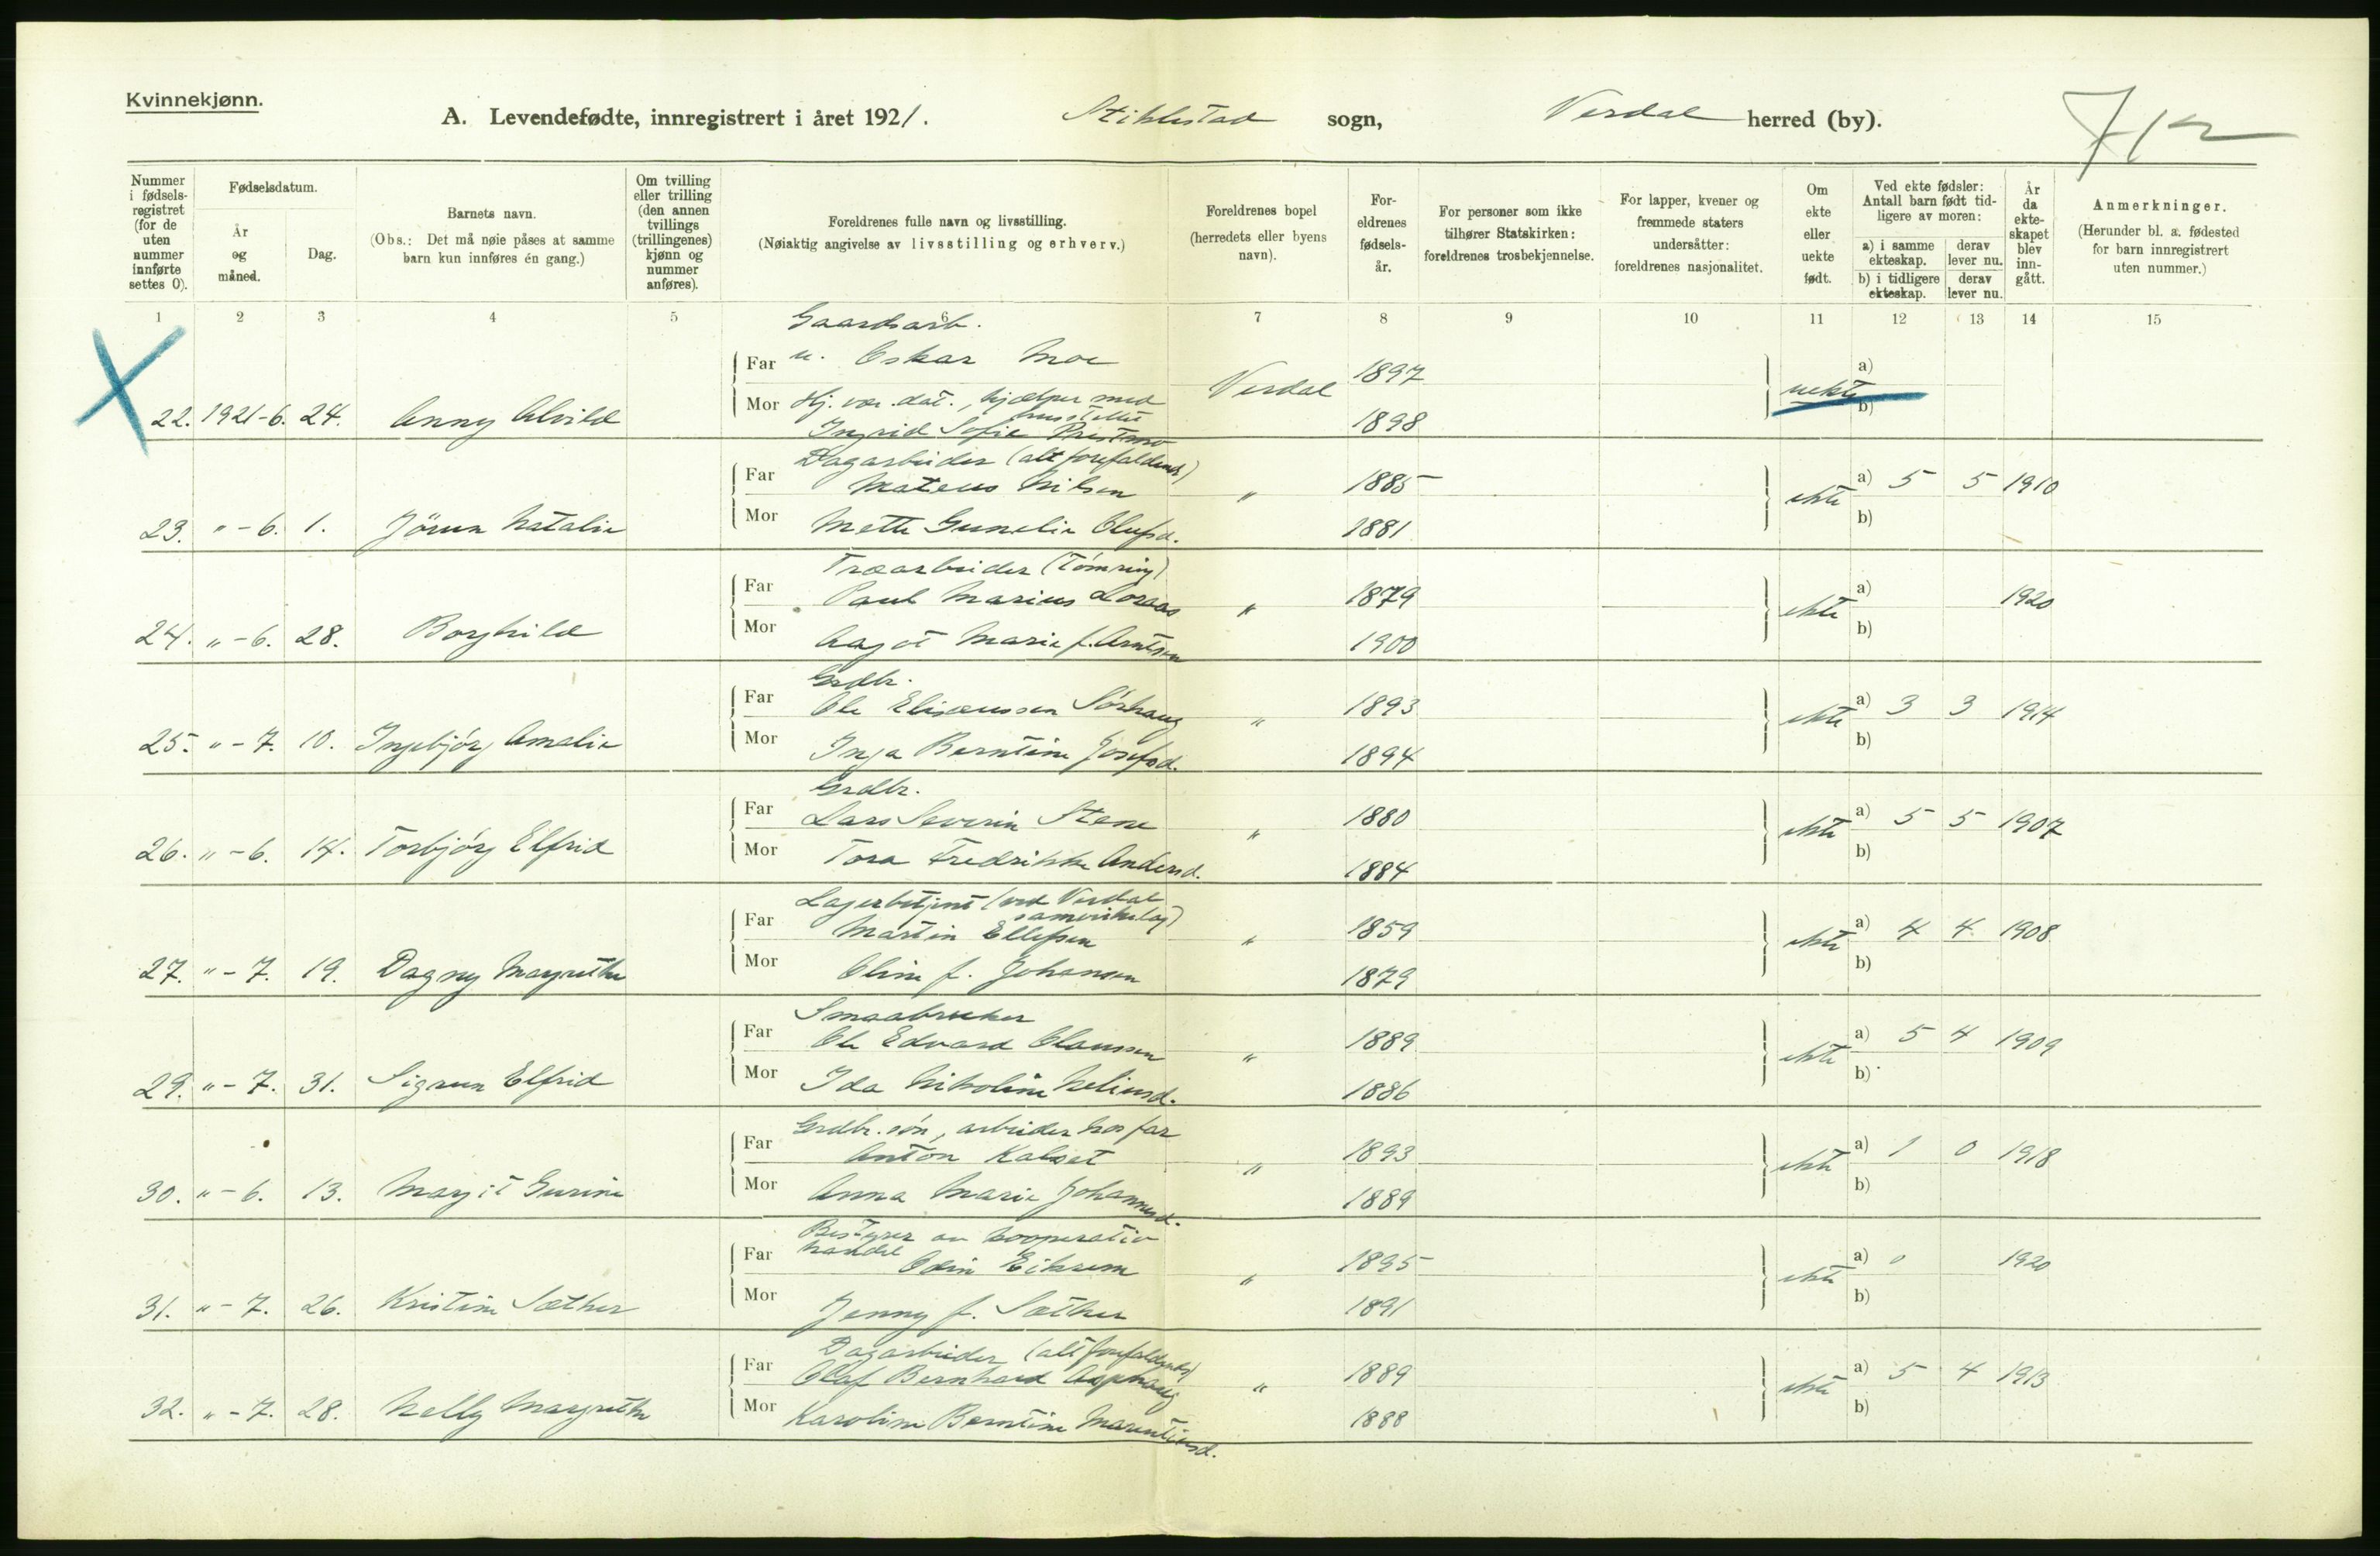 Kvinnekjønn.
A. Levendefødte, innregistrert i året 1921. Stiklestad sogn, Verdal herred (by).
712
Nummer i fødselsregistret (for de uten nummer innførte settes 0).
Fødselsdatum.
År og måned.
Dag.
Barnets navn.
(Obs.: Det må nøie påses at samme barn kun innføres én gang.)
Om tvilling eller trilling (den annen tvillings (trillingenes) kjønn og nummer anføres).
Foreldrenes fulle navn og livsstilling.
(Nøiaktig angivelse av livsstilling og erhverv.)
Foreldrenes bopel (herredets eller byens navn).
For-eldrenes fødsels-år.
For personer som ikke tilhører Statskirken: foreldrenes trosbekjennelse.
For lapper, kvener og fremmede staters undersåtter: foreldrenes nasjonalitet.
Om ekte eller uekte født.
Ved ekte fødsler: Antall barn født tid-ligere av moren:
a) i samme ekteskap. derav lever nu.
b) i tidligere ekteskap. derav lever nu.
År da ekte-skapet blev inn-gått.
Anmerkninger.
(Herunder bl. a. fødested for barn innregistrert uten nummer.)
1 2 3 4 5 6 7 8 9 10 11 12 13 14 15
Gaardsarb.
Far u. Oskar Moe 1897 a)
Mor Hj. vær. dat., hjælper med husstellet Verdal uekte b)
22. 1921-6. 24. Anny Alvild Ingrid Sofie Prestmo 1898
Dagarbeider (alt forefaldende)
Far Mateus Nilsen " 1885 ekte a) 5 5 1910
23. " - 6. 1. Jörun Natalie Mor Mette Gunelie Olufsd. 1881 b)
Træarbeider (Tømring)
Far Paul Marius Loraas " 1879 ekte a) 1920
24. " - 6. 28. Borghild Mor Aagot Marie f. Arntsen 1900 b)
Grdbr.
Far Ole Elisæussen Sørhaug " 1893 ekte a) 3 3 1914
25. " - 7. 10. Ingebjørg Amalie Mor Inga Berntine Josefsd. 1894 b)
Grdbr.
Far Lars Severin Stene " 1880 ekte a) 5 5 1907
26. " - 6. 14. Torbjørg Elfrid Mor Tora Fredrikke Andersd. 1884 b)
Lagerbetjent (ved Verdal samvirkelag)
Far Martin Ellefsen " 1859 ekte a) 4 4 1908
27. " - 7. 19. Dagny Margrethe Mor Oline f. Johansen 1879 b)
Smaabruker
Far Ole Edvard Olaussen " 1889 ekte a) 5 4 1909
29. " - 7. 31. Sigrun Elfrid Mor Ida Nikoline Neliusd. 1886 b)
Grdbr. søn, arbeider hos far
Far Anton Kalset " 1893 ekte a) 1 0 1918
30. " - 6. 13. Margit Gurine Mor Anna Marie Johannesd. 1889 b)
Bestyrer av kooperativ handel
Far Odin Eikrem " 1895 ekte a) 0 1920
31. " - 7. 26. Kristine Sæther Mor Jenny f. Sæther 1891 b)
Dagarbeider (alt forefaldende)
Far Olaf Bernhard Asphaug " 1889 ekte a) 5 4 1913
32. " - 7. 28. Nelly Margrethe Mor Karoline Berntine Marentiusd. 1888 b)